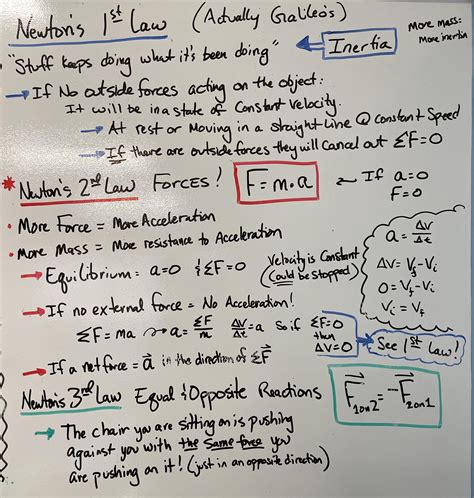 Newton's 1st Law (Actually Galileo's)
More Mass:
More inertia
"Stuff keeps doing what it's been doing" ← Inertia
→ If No outside forces acting on the object:
It will be in a state of Constant Velocity.
→ At rest or Moving in a straight Line @ constant Speed
→ If there are outside forces they will Cancel out ΣF=0
* Newton's 2nd Law FORCES! F=m·a ~ If a=0
F=0
• More Force = More Acceleration
• More Mass = More resistance to Acceleration
→ Equilibrium: a=0 & ΣF=0 Velocity is Constant
(Could be stopped)
a = ΔV/Δt
ΔV = Vf-Vi
0 = Vf-Vi
Vi = Vf
→ If no external force = No Acceleration!
ΣF = ma → a = ΣF/m ΔV/Δt = a So if ΣF=0
then
ΔV=0
→ See 1st Law!
→ If a net force = a⃗ in the direction of ΣF⃗
Newton's 3rd Law Equal & Opposite Reactions
F⃗1on2 = -F⃗2on1
→ The chair you are sitting on is pushing
against you with the same force you
are pushing on it! (just in an opposite direction)